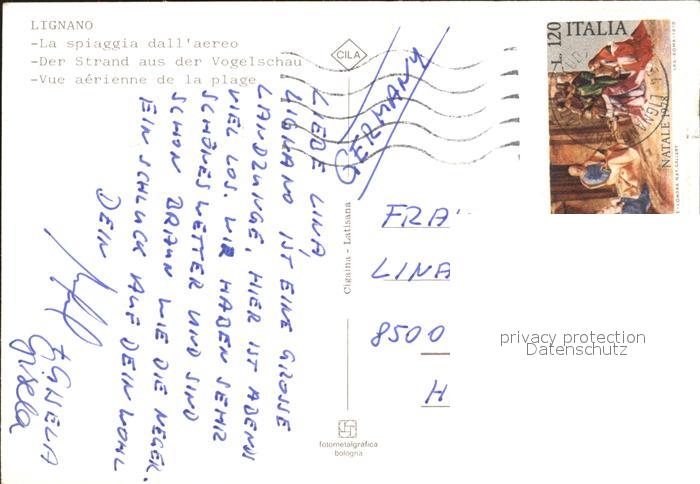 LIGNANO
-La spiaggia dall'aereo
-Der Strand aus der Vogelschau
-Vue aérienne de la plage
CILA
LIEBE LINA,
LIGNANO IST EINE GROSSE
LANDZUNGE. HIER IST ABENDS
VIEL LOS. WIR HABEN SEHR
SCHÖNES WETTER UND SIND
SCHON BRAUN WIE DIE NEGER.
EIN SCHLUCK AUF DEIN WOHL
DEIN
+ GISELA
Gisela
Cigaina - Latisana
fotometalgrafica
bologna
GERMANY
L. 120 ITALIA
NATALE
LONDRA NAT. GALLERY
FRA
LINA
8500
H
privacy protection
Datenschutz